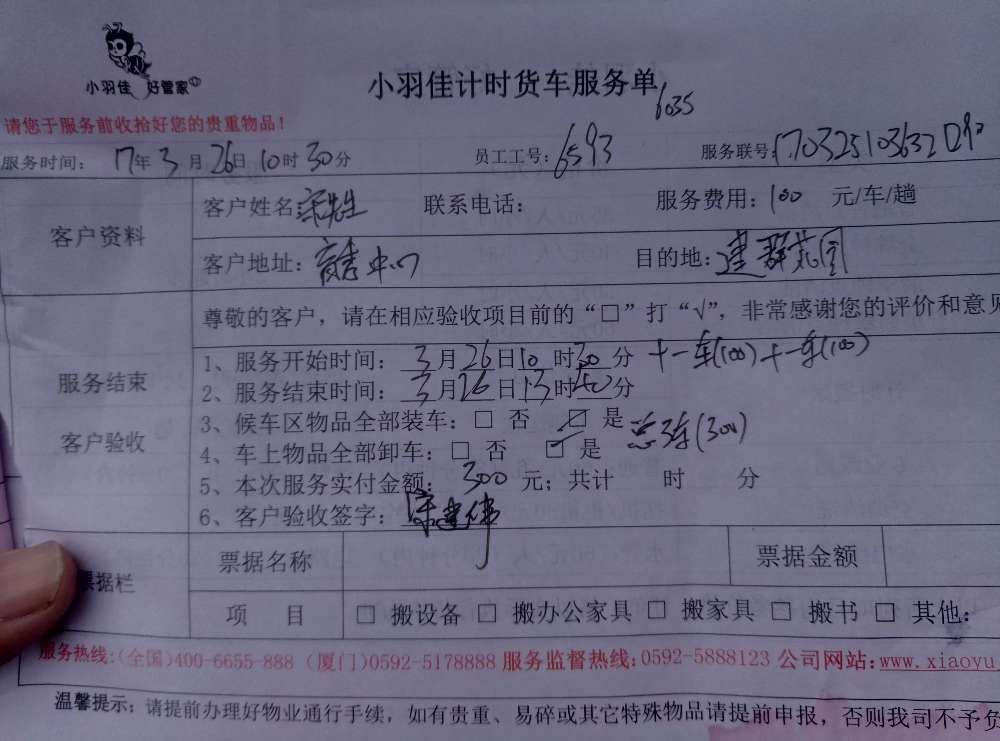 小羽佳 好管家
小羽佳计时货车服务单
6035
请您于服务前收拾好您的贵重物品！
服务时间： 17年 3 月 26日 10时 30分 员工工号：6593 服务联号：
客户资料
客户姓名：宋先生 联系电话： 服务费用：100 元/车/趟
客户地址： 中心 目的地：建群花园
尊敬的客户，请在相应验收项目前的“□”打“√”，非常感谢您的评价和意见
服务结束
客户验收
1、服务开始时间：3月26日10时30分 +一车(100)+一车(100)
2、服务结束时间：3月26日13时50分
3、候车区物品全部装车：□ 否 ☑ 是 总3车(300)
4、车上物品全部卸车：□ 否 ☑ 是
5、本次服务实付金额：300 元；共计 时 分
6、客户验收签字：宋建伟
票据栏
票据名称 票据金额
项 目 □ 搬设备 □ 搬办公家具 □ 搬家具 □ 搬书 □ 其他：
服务热线：(全国)400-6655-888 (厦门)0592-5178888 服务监督热线：0592-5888123 公司网站：www.xiaoyu
温馨提示：请提前办理好物业通行手续，如有贵重、易碎或其它特殊物品请提前申报，否则我司不予负